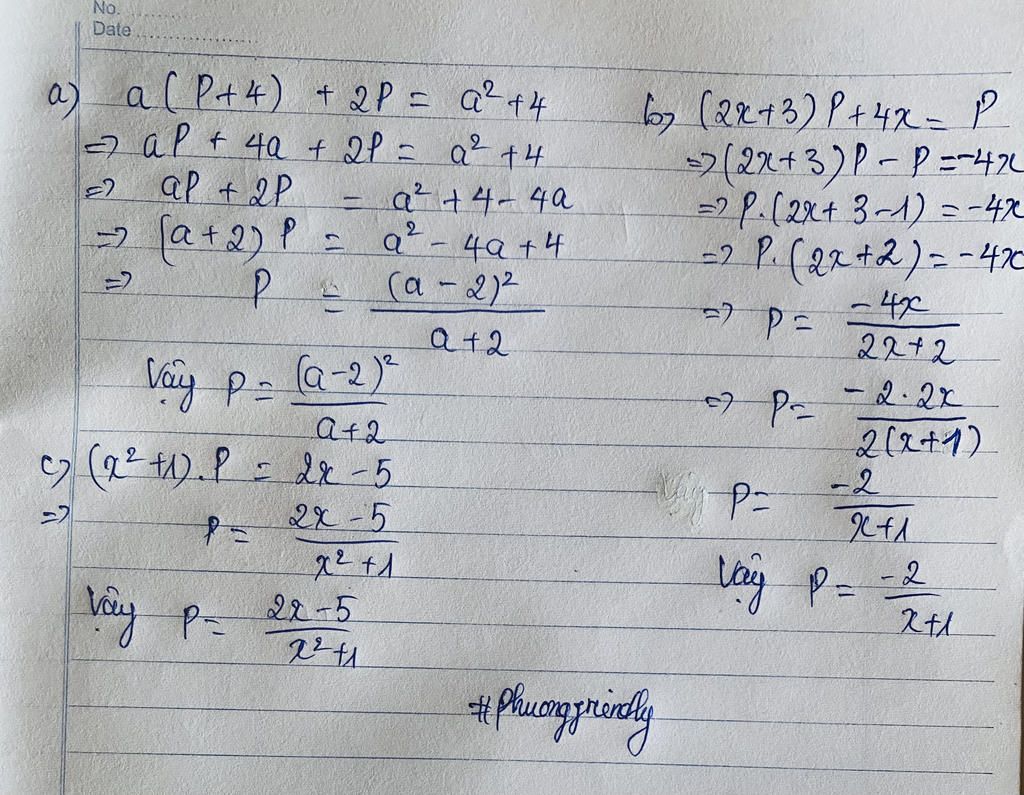 No. ............
Date ....................
a) a(P+4) + 2P = a² + 4
=> aP + 4a + 2P = a² + 4
=> aP + 2P = a² + 4 - 4a
=> (a+2) P = a² - 4a + 4
=> P = (a - 2)² / a + 2
Vậy P = (a-2)² / a+2
c) (x² + 1). P = 2x - 5
=> P = 2x - 5 / x² + 1
Vậy P = 2x - 5 / x² + 1
b) (2x+3) P + 4x = P
=> (2x+3) P - P = -4x
=> P. (2x + 3 - 1) = -4x
=> P. (2x + 2) = -4x
=> P = -4x / 2x + 2
=> P = -2 . 2x / 2(x+1)
P = -2 / x+1
Vậy P = -2 / x+1
#Phuongfriendly